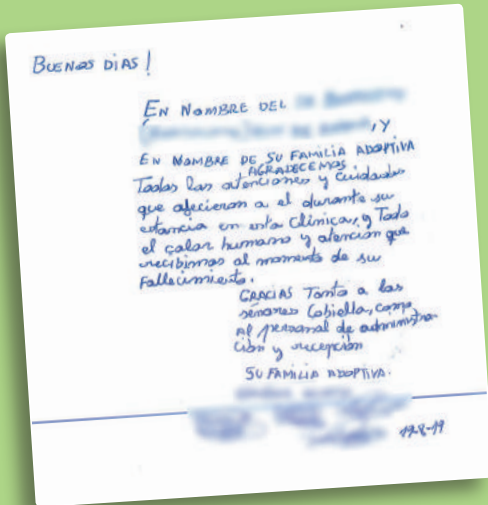 BUENOS DIAS!
EN NOMBRE DEL
, Y
EN NOMBRE DE SU FAMILIA ADOPTIVA
AGRADECEMOS
Todas las atenciones y cuidados
que ofecieron a el durante su
estancia en esta Clínica, y Todo
el calor humano y atención que
recibimos al momento de su
Fallecimiento.
GRACIAS Tanto a los
señores Cobiella, como
Al personal de administra-
ción y recepción
SU FAMILIA ADOPTIVA.